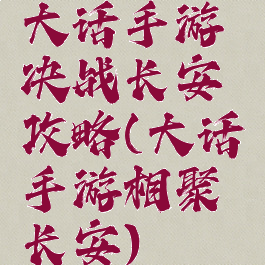 大话手游
决战长安
攻略(大话
手游相聚
长安)